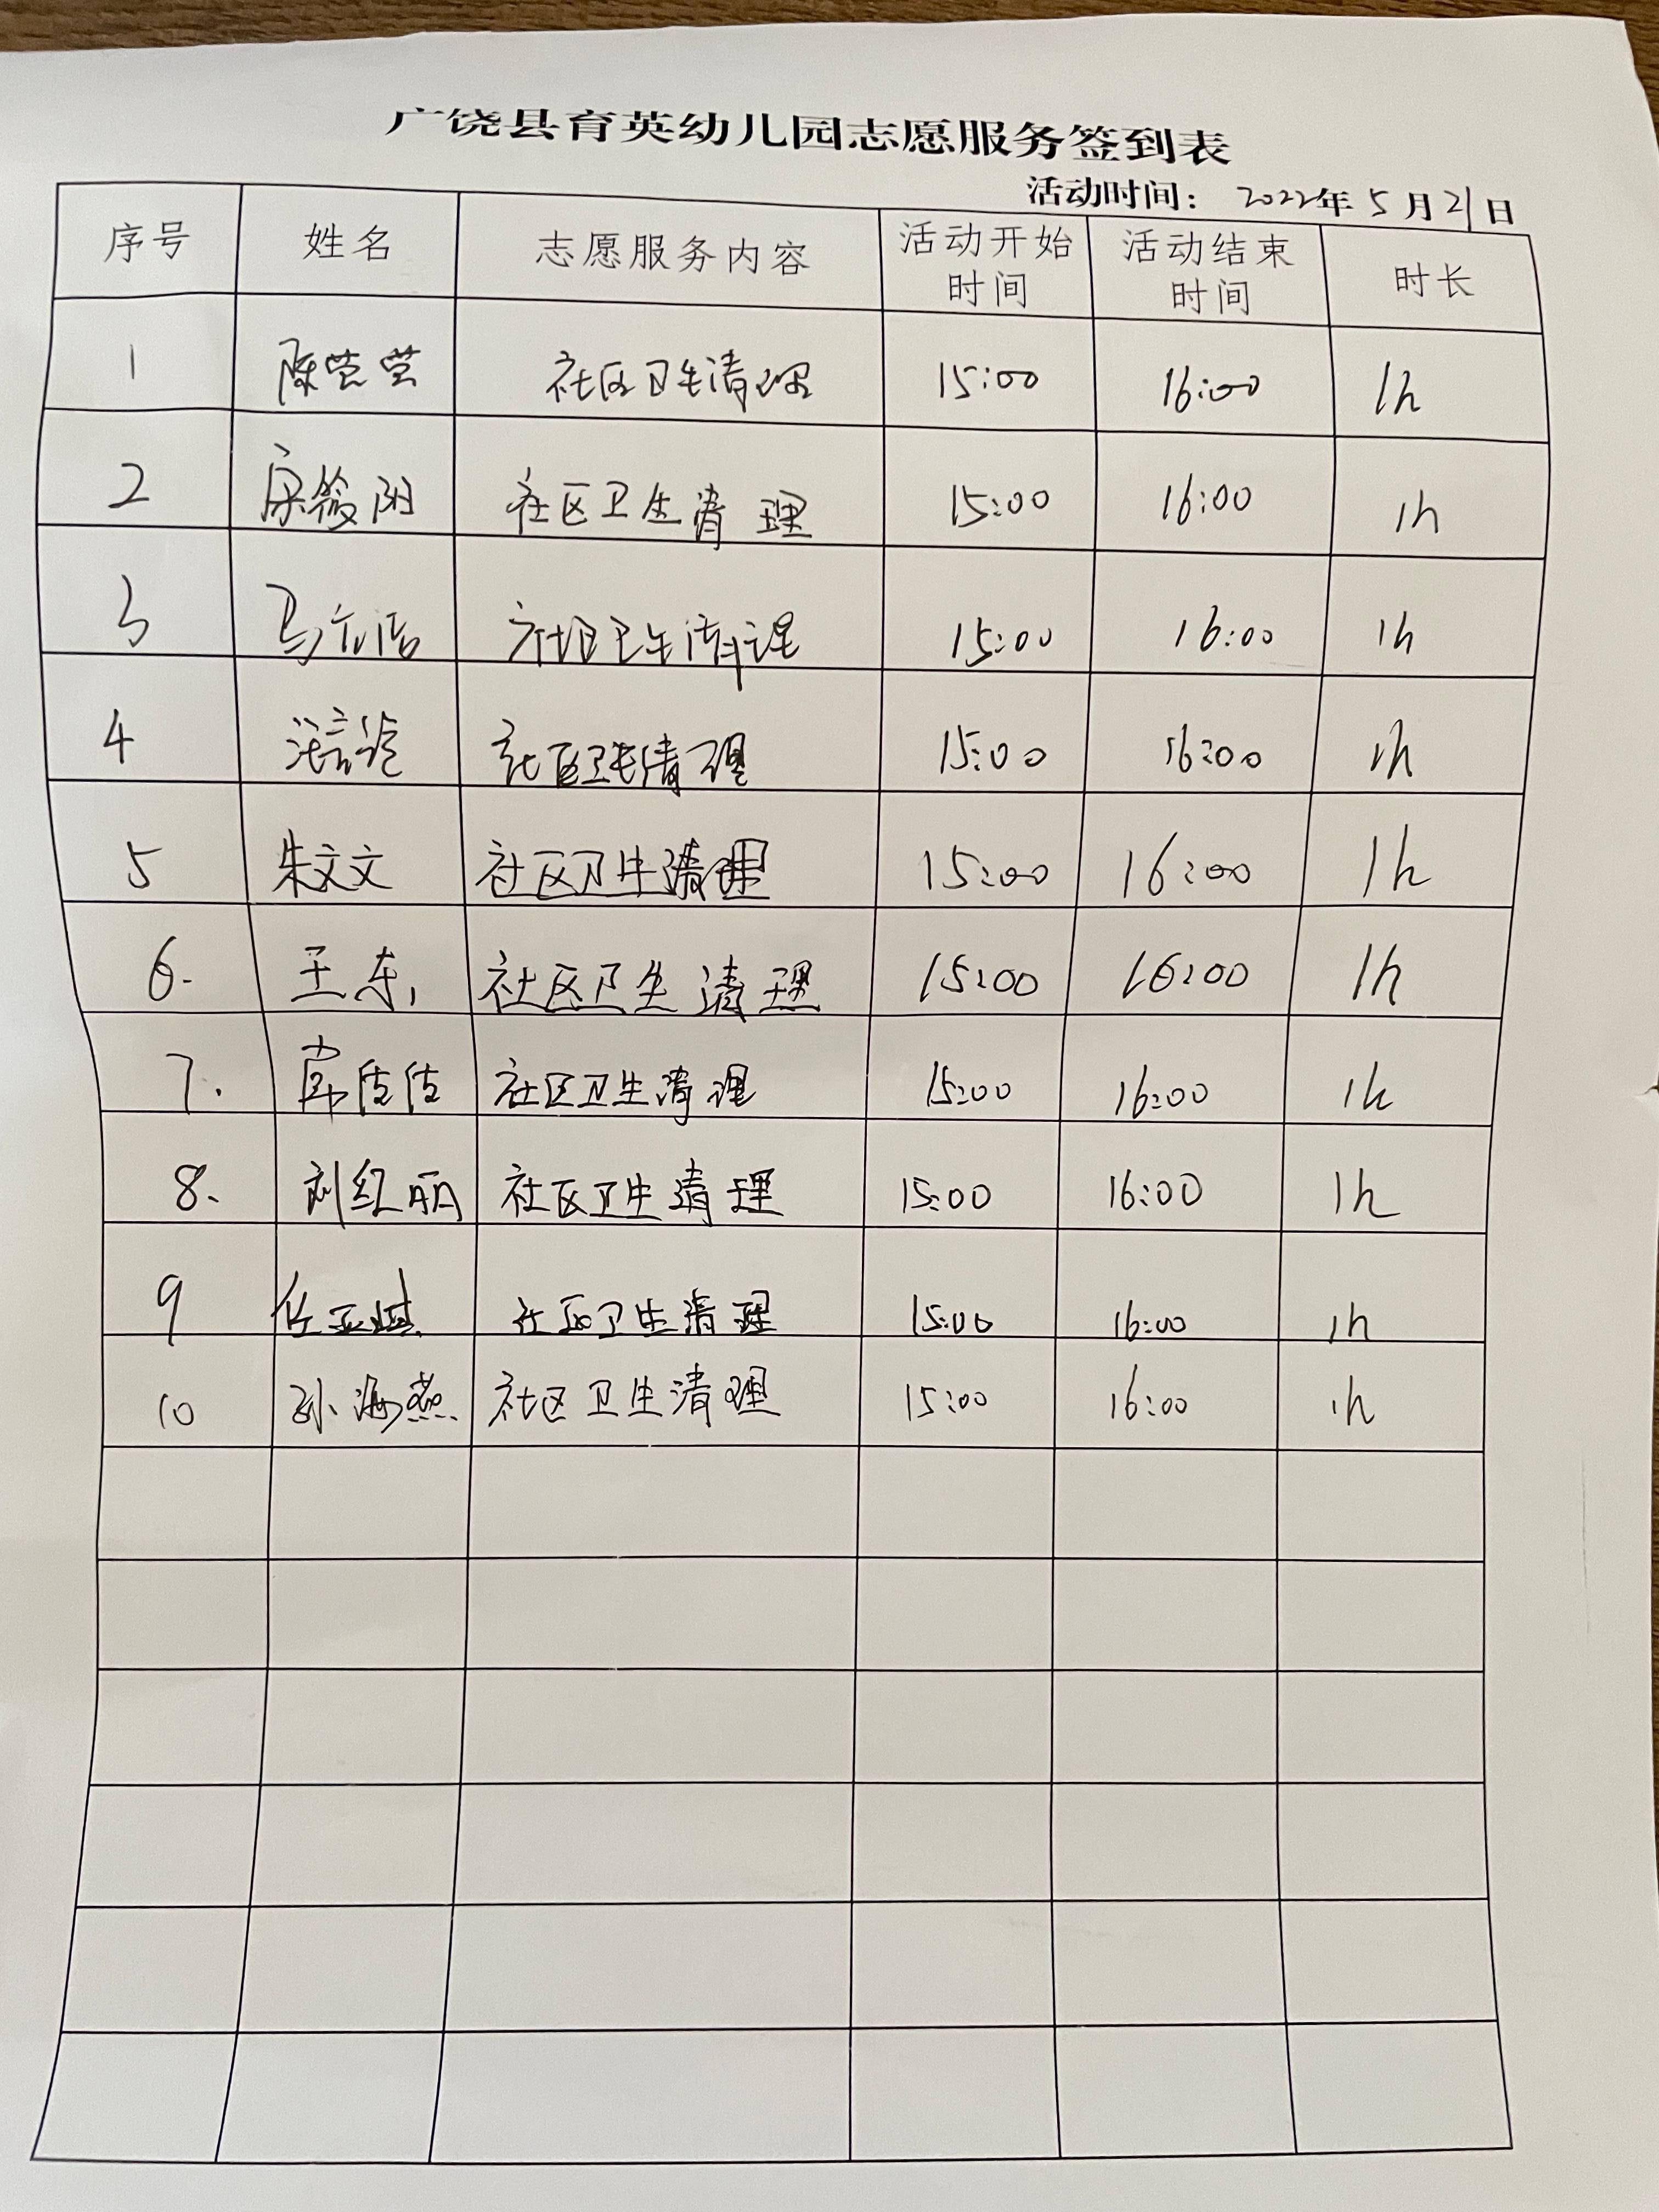 广饶县育英幼儿园志愿服务签到表
活动时间： 2022年5月21日
序号 姓名 志愿服务内容 活动开始时间 活动结束时间 时长
1 陈莹莹 社区卫生清理 15:00 16:00 1h
2 宋筱阳 社区卫生清理 15:00 16:00 1h
3 马 社区卫生清理 15:00 16:00 1h
4 社区卫生清理 15:00 16:00 1h
5 朱文文 社区卫生清理 15:00 16:00 1h
6. 王东 社区卫生清理 15:00 16:00 1h
7. 社区卫生清理 15:00 16:00 1h
8. 刘红丽 社区卫生清理 15:00 16:00 1h
9 任亚 社区卫生清理 15:00 16:00 1h
10 孙海燕 社区卫生清理 15:00 16:00 1h